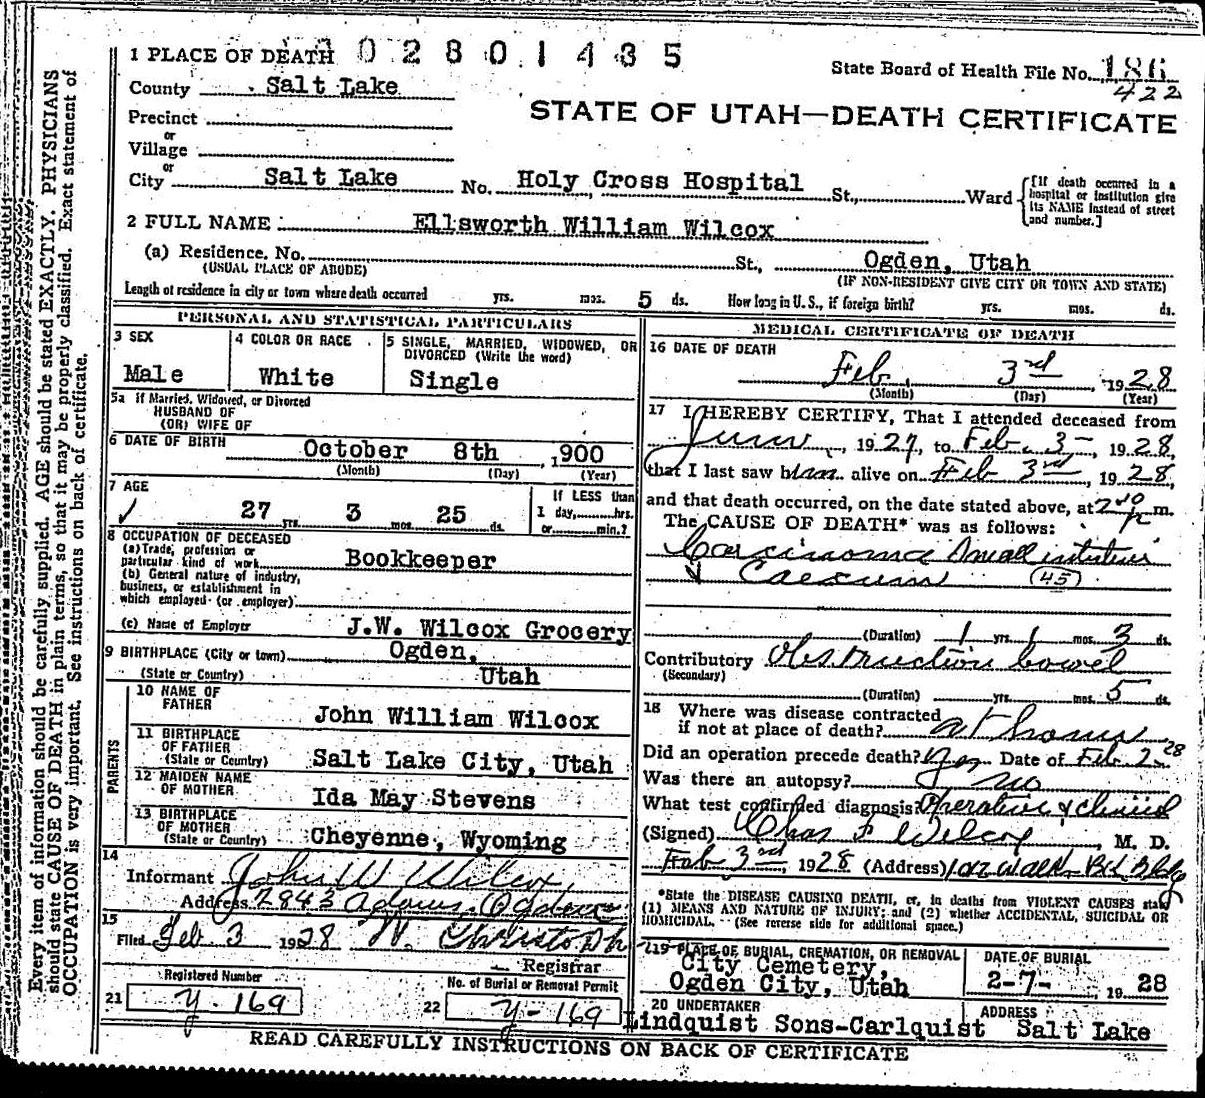 1 PLACE OF DEATH 0 2 8 0 1 4 3 5
State Board of Health File No. 186
422
County Salt Lake
STATE OF UTAH—DEATH CERTIFICATE
Precinct
or
Village
or
City Salt Lake No. Holy Cross Hospital St., Ward
[If death occurred in a hospital or institution give its NAME instead of street and number.]
2 FULL NAME Ellsworth William Wilcox
(a) Residence. No. St., Ogden, Utah
(USUAL PLACE OF ABODE) (IF NON-RESIDENT GIVE CITY OR TOWN AND STATE)
Length of residence in city or town where death occurred yrs. mos. 5 ds. How long in U.S., if foreign birth? yrs. mos. ds.
PERSONAL AND STATISTICAL PARTICULARS
3 SEX
Male
4 COLOR OR RACE
White
5 SINGLE, MARRIED, WIDOWED, OR DIVORCED (Write the word)
Single
5a If Married, Widowed, or Divorced
HUSBAND OF
(OR) WIFE OF
6 DATE OF BIRTH October 8th, 1900
(Month) (Day) (Year)
7 AGE
27 yrs. 3 mos. 25 ds.
If LESS than
1 day, hrs.
or min.?
8 OCCUPATION OF DECEASED
(a) Trade, profession or
particular kind of work Bookkeeper
(b) General nature of industry,
business, or establishment in
which employed (or employer)
(c) Name of Employer J.W. Wilcox Grocery
9 BIRTHPLACE (City or town) Ogden,
(State or Country) Utah
PARENTS
10 NAME OF
FATHER John William Wilcox
11 BIRTHPLACE
OF FATHER
(State or Country) Salt Lake City, Utah
12 MAIDEN NAME
OF MOTHER Ida May Stevens
13 BIRTHPLACE
OF MOTHER
(State or Country) Cheyenne, Wyoming
14
Informant John W Wilcox
Address 2843 Adams, Ogden
15
Filed Feb 3 1928
Registrar
Registered Number
21 Y-169
No. of Burial or Removal Permit
22 Y-169
MEDICAL CERTIFICATE OF DEATH
16 DATE OF DEATH
Feb, 3rd, 1928
(Month) (Day) (Year)
17 I HEREBY CERTIFY, That I attended deceased from
June, 1927, to Feb. 3, 1928,
that I last saw him alive on Feb 3rd, 1928,
and that death occurred, on the date stated above, at 2 p m.
The CAUSE OF DEATH* was as follows:
Carcinoma Small intestine
& Caecum (45)
(Duration) 1 yrs. 1 mos. 3 ds.
Contributory Obstruction bowel
(Secondary)
(Duration) yrs. mos. 5 ds.
18 Where was disease contracted
if not at place of death? at home
Did an operation precede death? Yes Date of Feb 2 28
Was there an autopsy? No
What test confirmed diagnosis? Operative & clinical
(Signed) Chas F Wilcox, M. D.
Feb 3rd, 1928 (Address) Walker Bk Bldg
*State the DISEASE CAUSING DEATH, or, in deaths from VIOLENT CAUSES state
(1) MEANS AND NATURE OF INJURY; and (2) whether ACCIDENTAL, SUICIDAL OR
HOMICIDAL. (See reverse side for additional space.)
19 PLACE OF BURIAL, CREMATION, OR REMOVAL
City Cemetery,
Ogden City, Utah
DATE OF BURIAL
2-7- 1928
20 UNDERTAKER
Lindquist Sons-Carlquist
ADDRESS
Salt Lake
READ CAREFULLY INSTRUCTIONS ON BACK OF CERTIFICATE
Every item of information should be carefully supplied. AGE should be stated EXACTLY. PHYSICIANS
should state CAUSE OF DEATH in plain terms, so that it may be properly classified. Exact statement of
OCCUPATION is very important. See instructions on back of certificate.